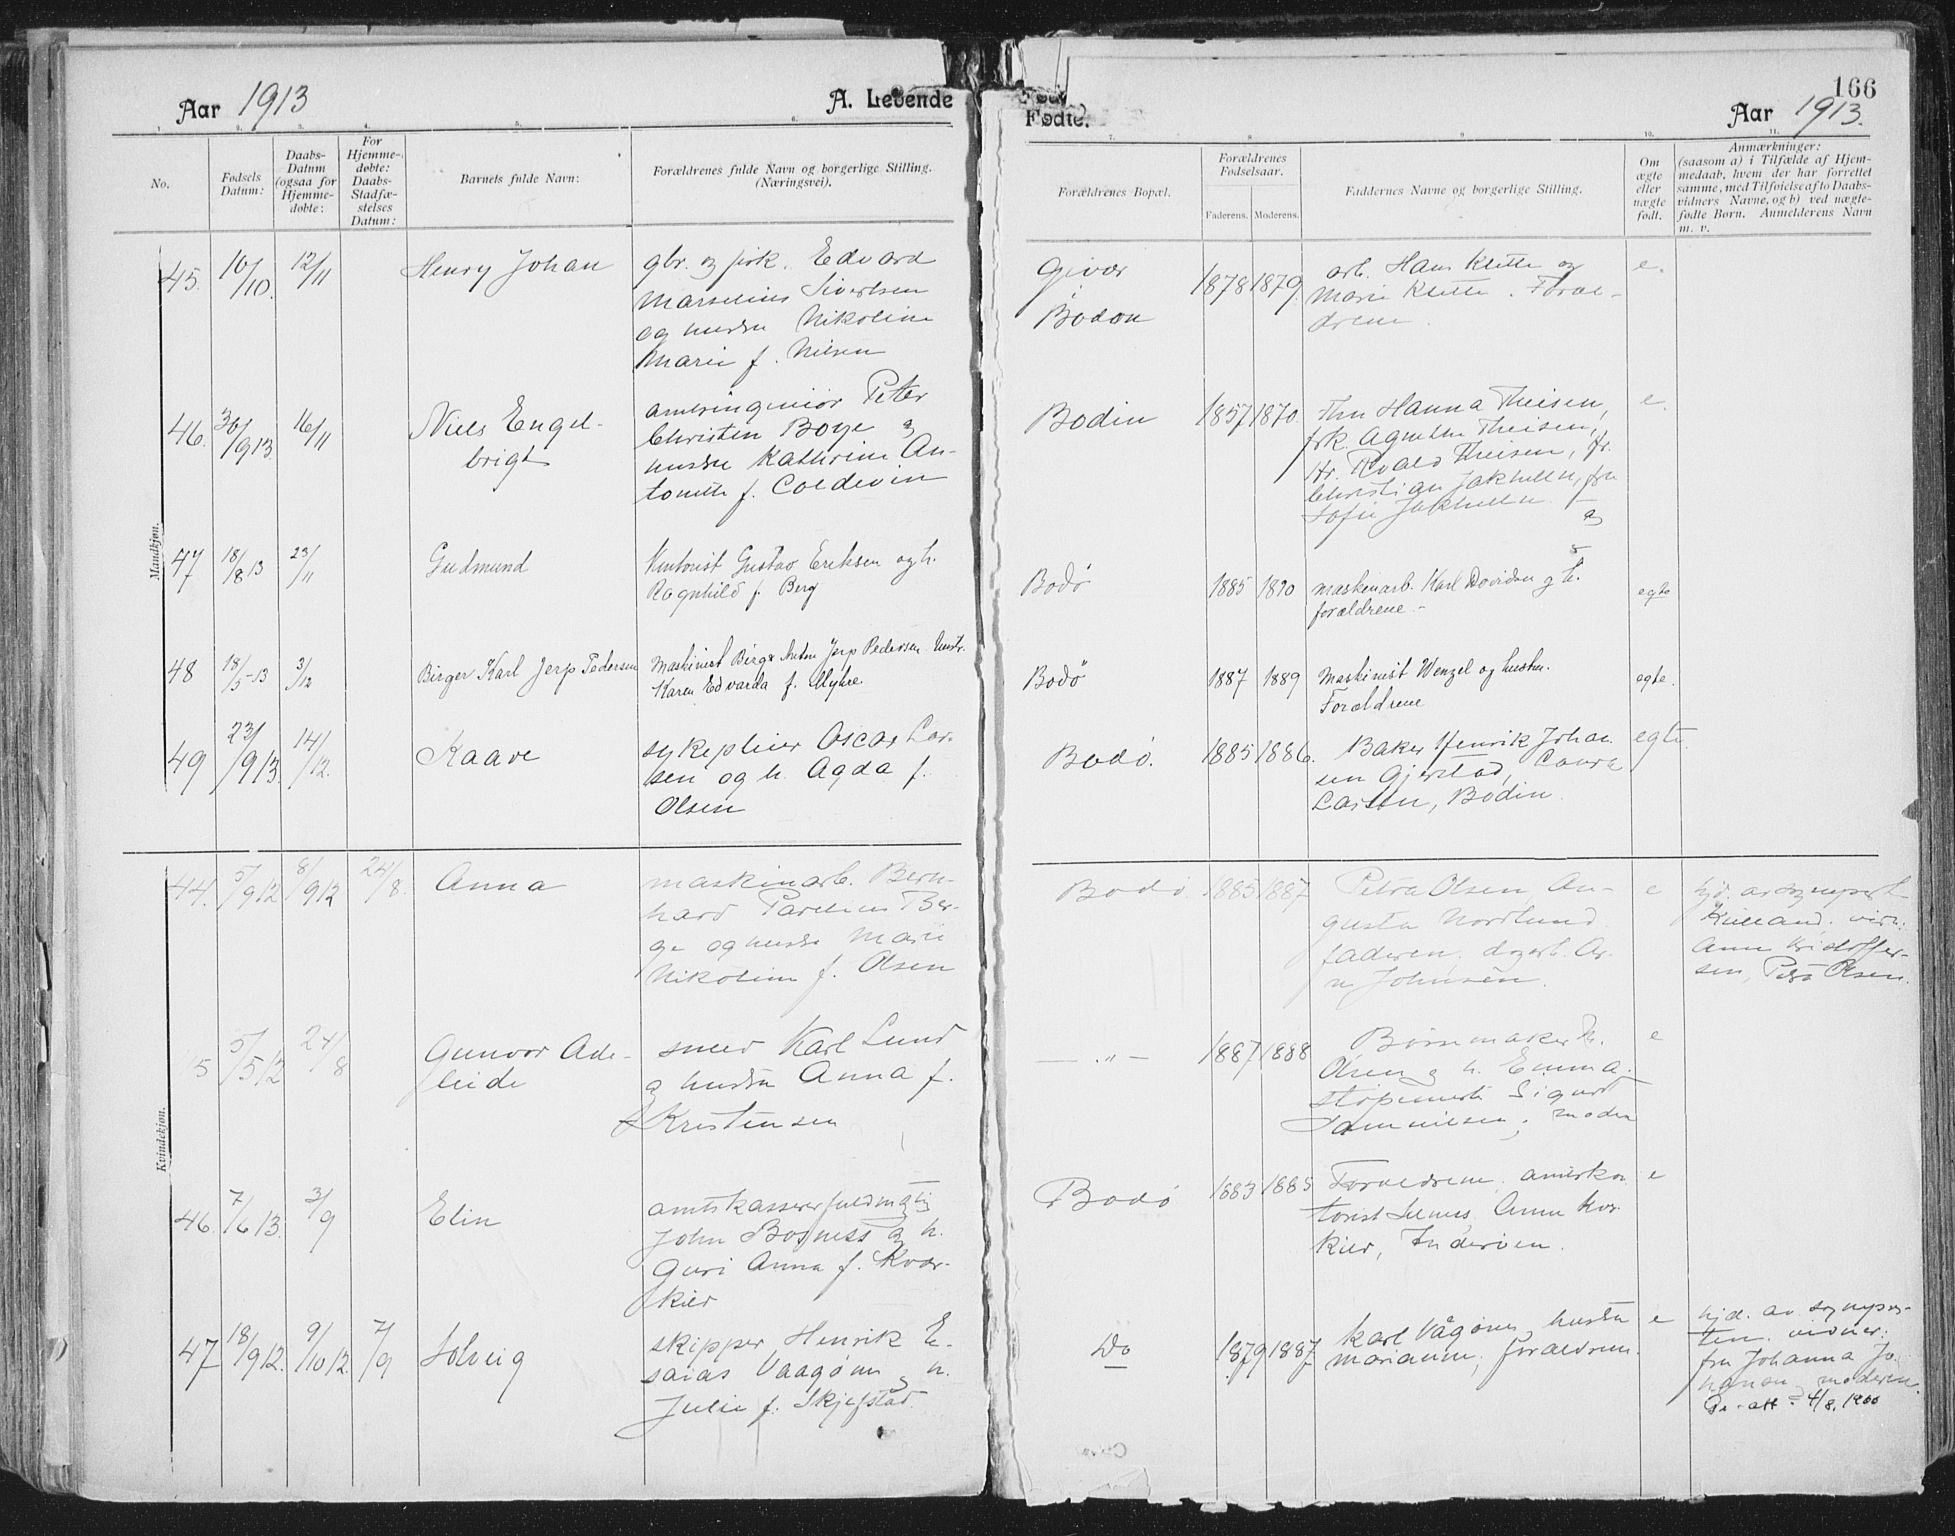 Aar 1913
A. Levende
Fødte.
166
Aar 1913.
1. 2. 3. 4. 5. 6. 7. 8. 9. 10. 11.
No.
Fødsels Datum:
Daabs-Datum (ogsaa for Hjemme-døbte:
For Hjemme-døbte: Daabs-Stadfæ-stelses Datum:
Barnets fulde Navn:
Forældrenes fulde Navn og borgerlige Stilling.
(Næringsvei).
Forældrenes Bopæl.
Forældrenes Fødselsaar.
Faderens. Moderens.
Faddernes Navne og borgerlige Stilling.
Om ægte eller uægte født.
Anmærkninger:
(saasom a) i Tilfælde af Hjem-
medaab, hvem der har forrettet
samme, med Tilføielse af to Daabs-
vidners Navne, og b) ved uægte-
fødte Børn. Anmelderens Navn
m. v.
Mandkjøn.
45. 10/10. 12/11 Henry Johan
gbr. og fisk. Edvard
Marselius Sivertsen
og hustru Nikoline
Marie f. Nilsen
Givær
Bodøn
1878 1879.
arb. Hans Klette og
Marie Klette. Foræl-
drene.
e.
46. 30/9 13. 16/11 Niels Engel-
brigt
amtsingeniør Peter
Christen Boye og
hustru Kathrine An-
tonette f. Coldevin
Bodin
1857 1870
Fru Hanna Theisen,
frk. Agnethe Theisen,
Hr. Roald Theisen, Hr.
Christian Jakhelln, fru
Sofie Jakhelln.
e.
47 18/8 13 23/11 Gudmund
Kontorist Gustav Eriksen og h.
Ragnhild f. Berg
Bodø
1885 1890
maskinarb. Karl Davidsen og h.
forældrene.-
egte
48 18/5-13 3/12 Birger Karl Jerp Pedersen
Maskinist Birger Anton Jerp Pedersen Hustr.
Karen Edvarda f. Myhre.
Bodø
1887 1889
Maskinist Wenzel og hustru.
Forældrene
egte.
49 23/9 13. 14/12. Kaare
sykepleier Oscar Lar-
sen og h. Agda f.
Olsen
Bodø.
1885 1886.
Baker Henrik Johan
sen Gjerstad, Laura
Larsen, Bodin.
egte
Kvindekjøn.
44. 5/9 12 8/9 12 24/8. Anna
maskinarb. Bern-
hard Parelius Ber-
ge og hustru Marie
Nikoline f. Olsen
Bodø.
1885 1887
Petra Olsen, Au-
gusta Nordlund
faderen, dagarb. Ar-
n Johnsen.
e
hjd. av sogneprest
Kielland, vidn:
Anna Kristoffer-
sen, Petra Olsen.
5 5/5 12 24/8 Gunvor Ade-
leide
smed Karl Lund
og hustru Anna f.
Kristensen
— " —
1887 1888
Børsemaker H.
Olsen og h. Emma.
støpemester Sigurd
Danielsen, moden
e
46. 7/6 13. 3/9 Elin
amtskassererfuldmægtig
John Bosness og h.
Guri Anna f. Kvær-
kild
Bodø
1883 1885
Forældrene, amtskon
torist Selnes, Anna Kvær
kild, Inderøen.
e
47 18/9 12. 9/10 12. 7/9 Solveig
skipper Henrik E-
saias Vaagønes og h.
Julie f. Skjefstad.
Do
1879 1887
Karl Vågønes, hustru
Marianne, forældrene.
e
hjd. av sognepres-
ten. vidner:
fru Johanna Jo-
hansen, moderen.
4/8. 1900